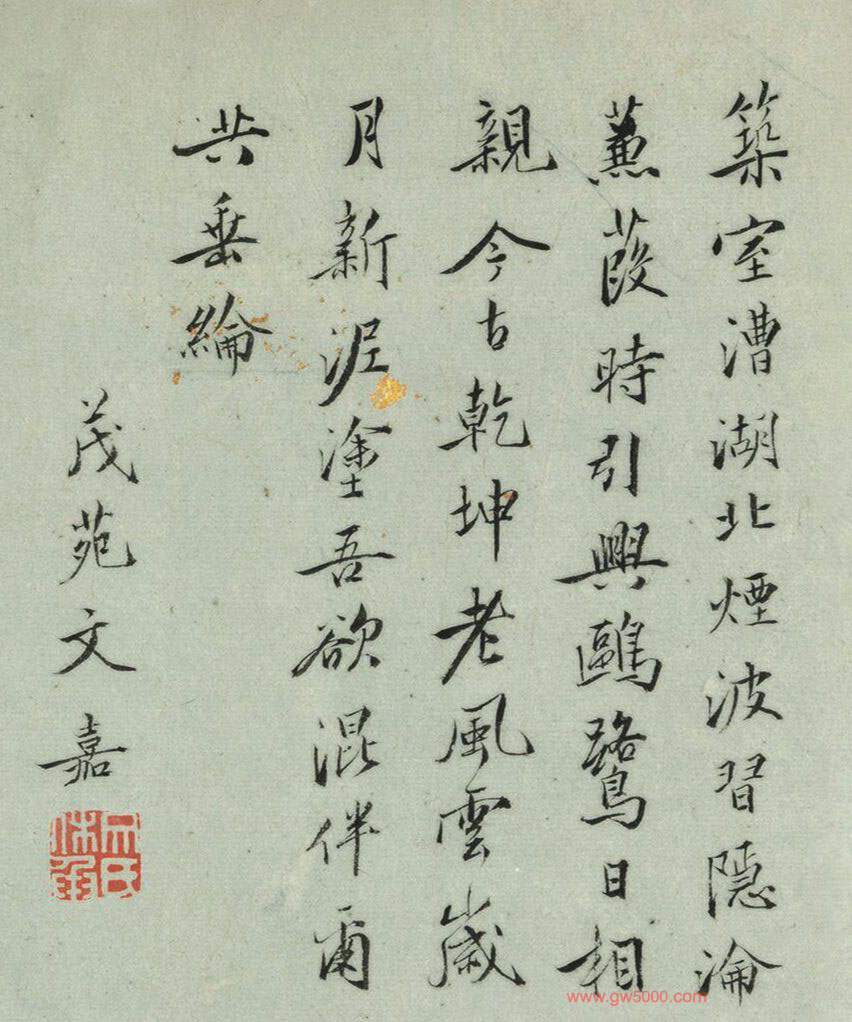 築室漕湖北煙波習隱淪
蒹葭時引興鷗鷺日相
親今古乾坤老風雲歲
月新泥塗吾欲混伴爾
共垂綸
茂苑文嘉
www.gw5000.com